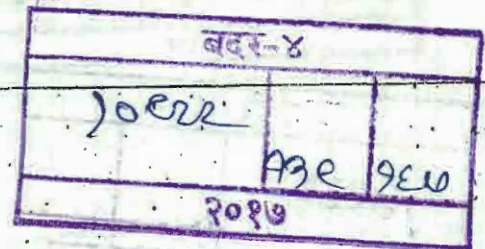 बदर-४
१०९२२ १३९ १६७
२०१७